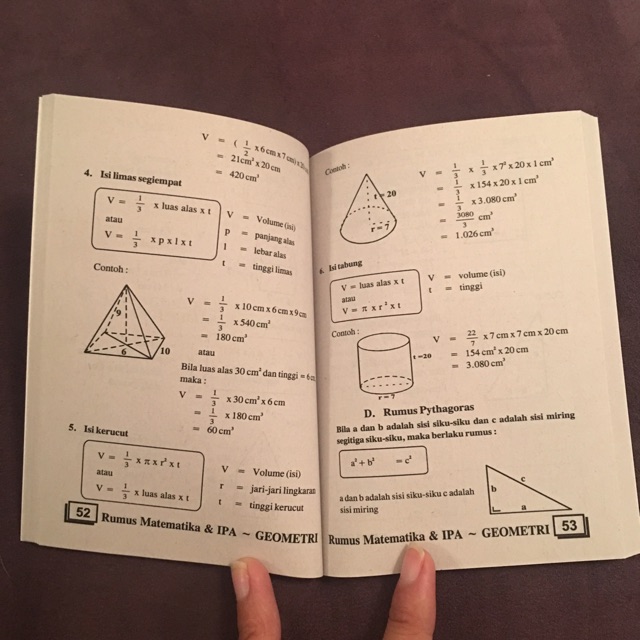 V = ( 1/2 x 6 cm x 7 cm) x 20
= 21cm² x 20 cm
= 420 cm³
4. Isi limas segiempat
V = 1/3 x luas alas x t
atau
V = 1/3 x p x l x t
V = Volume (isi)
p = panjang alas
l = lebar alas
t = tinggi limas
Contoh :
9
6
10
V = 1/3 x 10 cm x 6 cm x 9 cm
= 1/3 x 540 cm³
= 180 cm³
atau
Bila luas alas 30 cm² dan tinggi = 6 cm
maka :
V = 1/3 x 30 cm² x 6 cm
= 1/3 x 180 cm³
= 60 cm³
5. Isi kerucut
V = 1/3 x π x r² x t
atau
V = 1/3 x luas alas x t
V = Volume (isi)
r = jari-jari lingkaran
t = tinggi kerucut
52 Rumus Matematika & IPA ~ GEOMETRI
Contoh :
t = 20
r = 7
V = 1/3 x 1/3 x 7² x 20 x 1 cm³
= 1/3 x 154 x 20 x 1 cm³
= 1/3 x 3.080 cm³
= 3080/3 cm³
= 1.026 cm³
6. Isi tabung
V = luas alas x t
atau
V = π x r² x t
V = volume (isi)
t = tinggi
Contoh :
t = 20
r = 7
V = 22/7 x 7 cm x 7 cm x 20 cm
= 154 cm² x 20 cm
= 3.080 cm³
D. Rumus Pythagoras
Bila a dan b adalah sisi siku-siku dan c adalah sisi miring
segitiga siku-siku, maka berlaku rumus :
a² + b² = c²
a dan b adalah sisi siku-siku c adalah
sisi miring
b
c
a
Rumus Matematika & IPA ~ GEOMETRI 53